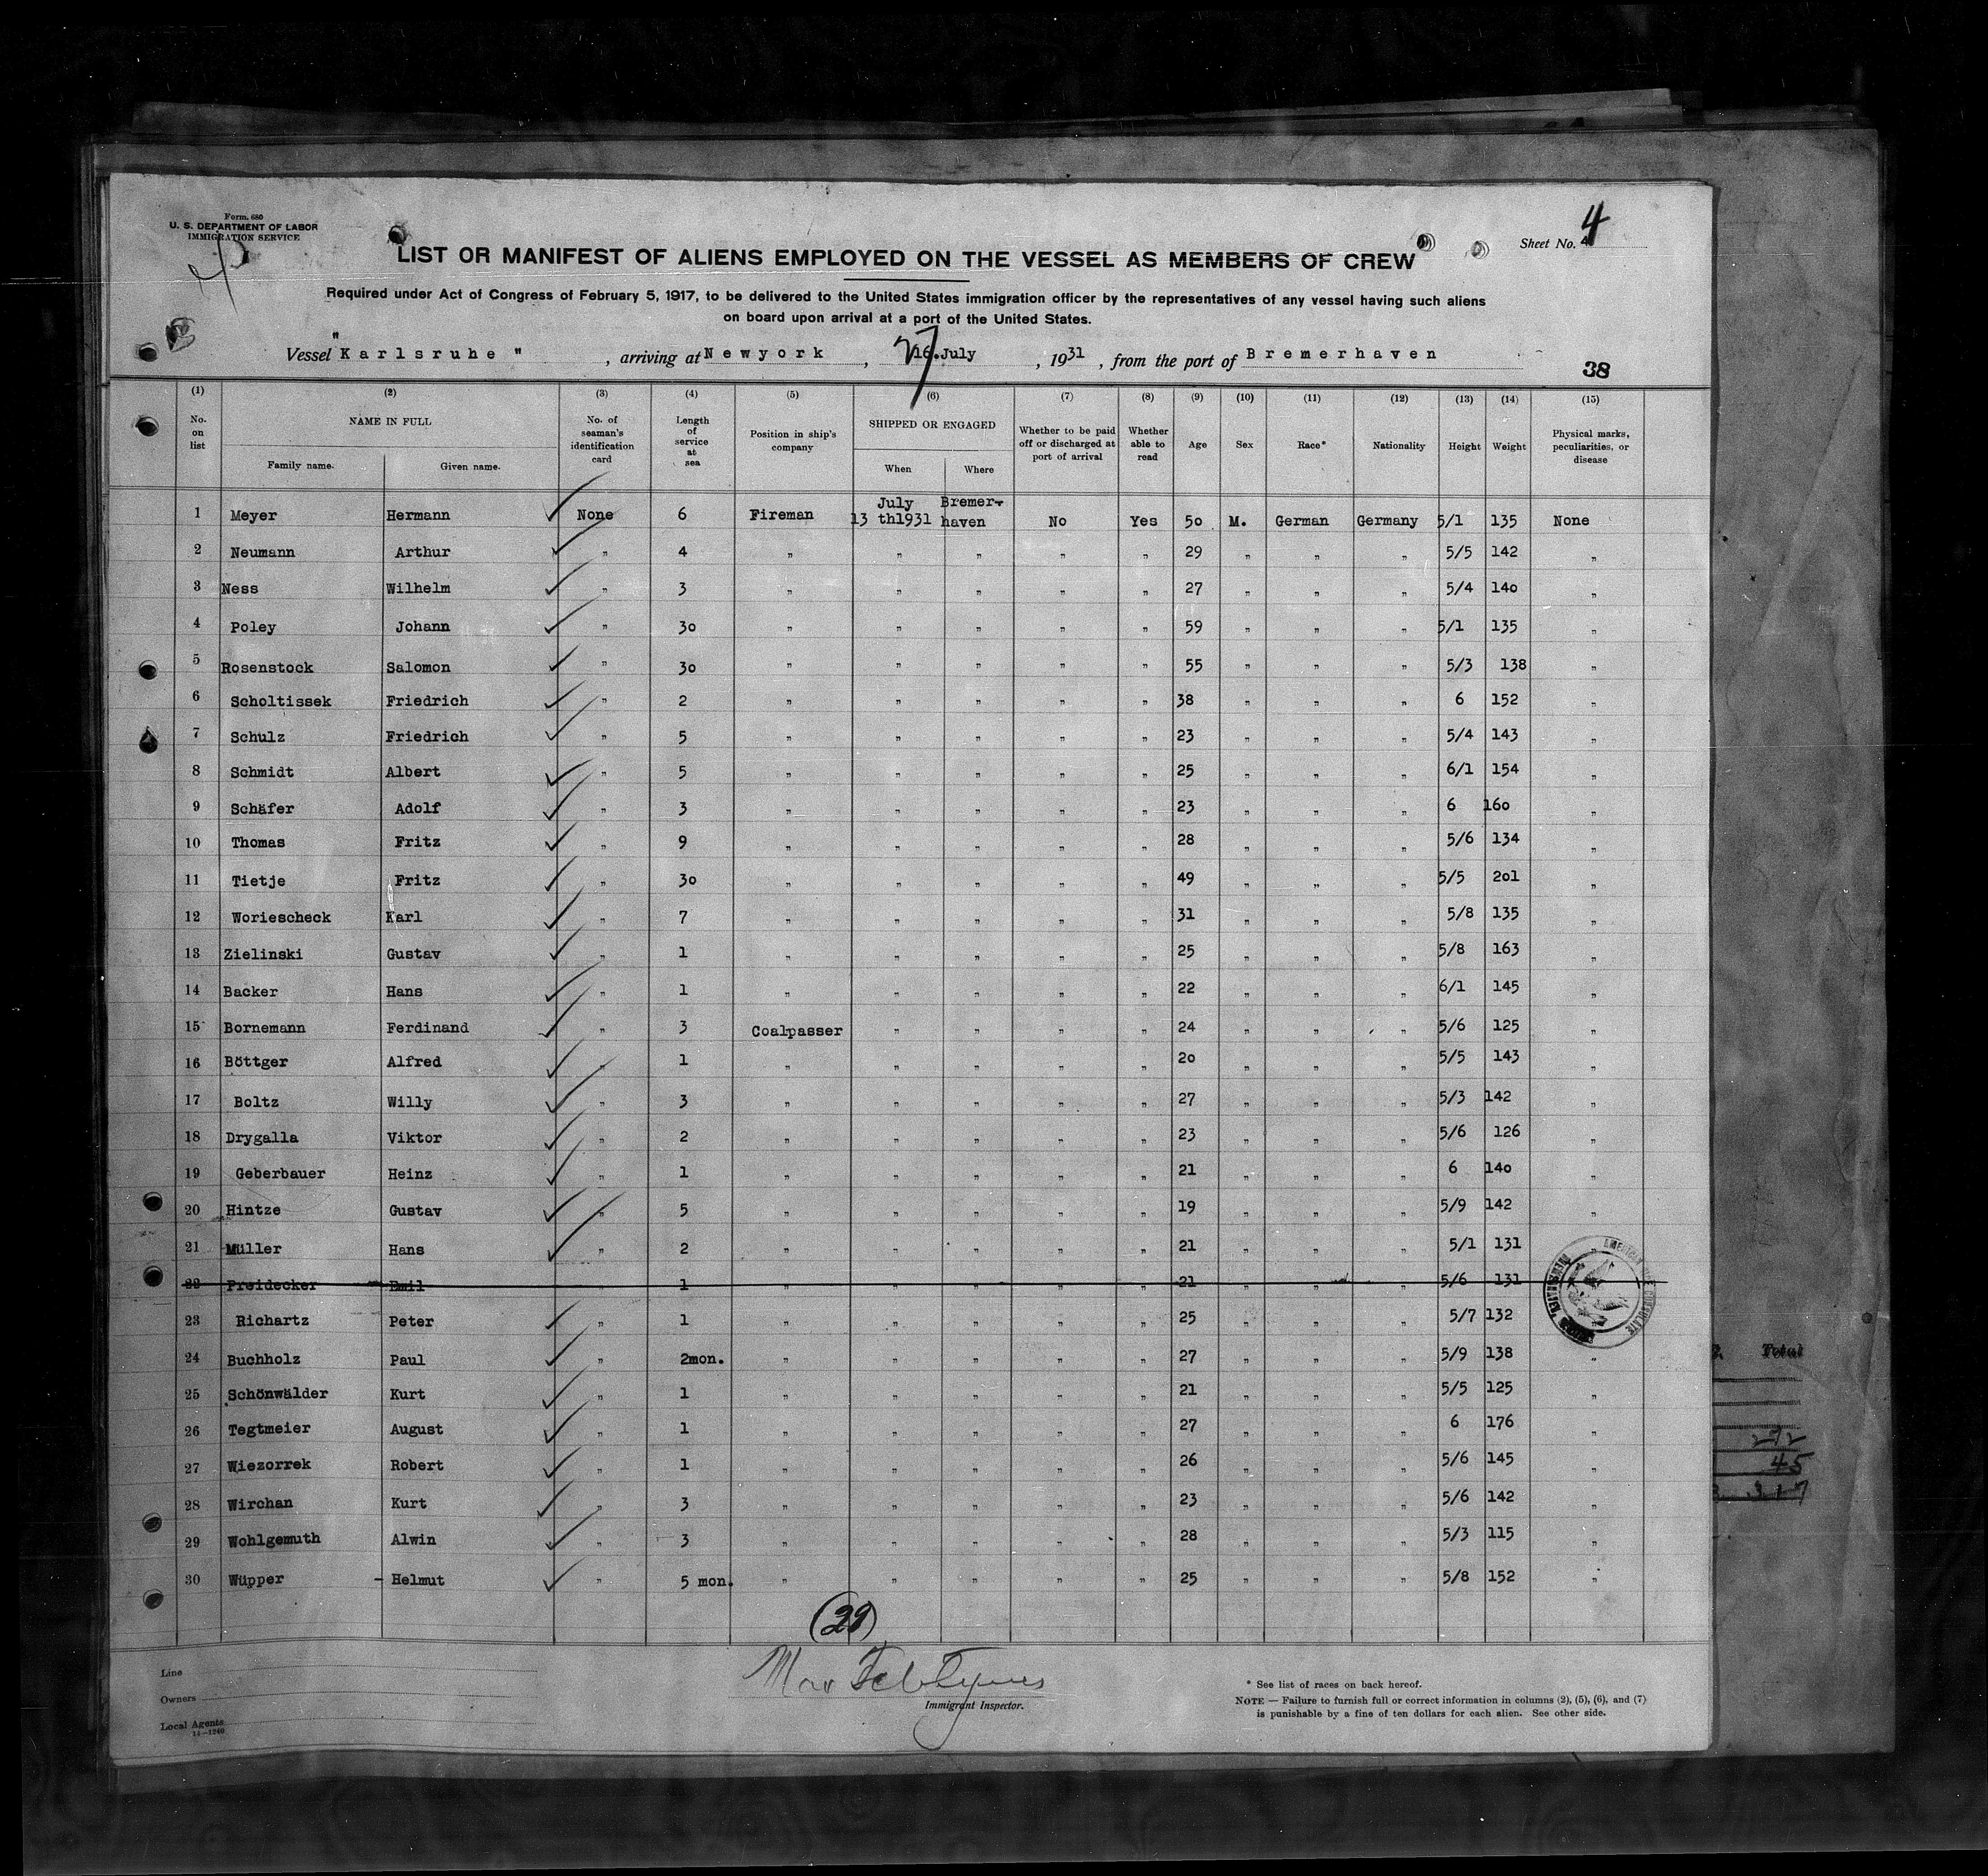 Form. 680
U. S. DEPARTMENT OF LABOR
IMMIGRATION SERVICE
Sheet No. 4
4
LIST OR MANIFEST OF ALIENS EMPLOYED ON THE VESSEL AS MEMBERS OF CREW
Required under Act of Congress of February 5, 1917, to be delivered to the United States immigration officer by the representatives of any vessel having such aliens
on board upon arrival at a port of the United States.
Vessel "Karlsruhe", arriving at Newyork, 16.July, 1931, from the port of Bremerhaven
17
38
(1) (2) (3) (4) (5) (6) (7) (8) (9) (10) (11) (12) (13) (14) (15)
No. on list NAME IN FULL Family name. Given name. No. of seaman's identification card Length of service at sea Position in ship's company SHIPPED OR ENGAGED When Where Whether to be paid off or discharged at port of arrival Whether able to read Age Sex Race* Nationality Height Weight Physical marks, peculiarities, or disease
1 Meyer Hermann None 6 Fireman July 13 th1931 Bremer-haven No Yes 50 M. German Germany 5/1 135 None
2 Neumann Arthur " 4 " " " " " 29 " " " 5/5 142 "
3 Ness Wilhelm " 3 " " " " " 27 " " " 5/4 140 "
4 Poley Johann " 30 " " " " " 59 " " " 5/1 135 "
5 Rosenstock Salomon " 30 " " " " " 55 " " " 5/3 138 "
6 Scholtissek Friedrich " 2 " " " " " 38 " " " 6 152 "
7 Schulz Friedrich " 5 " " " " " 23 " " " 5/4 143 "
8 Schmidt Albert " 5 " " " " " 25 " " " 6/1 154 "
9 Schäfer Adolf " 3 " " " " " 23 " " " 6 160 "
10 Thomas Fritz " 9 " " " " " 28 " " " 5/6 134 "
11 Tietje Fritz " 30 " " " " " 49 " " " 5/5 201 "
12 Woriescheck Karl " 7 " " " " " 31 " " " 5/8 135 "
13 Zielinski Gustav " 1 " " " " " 25 " " " 5/8 163 "
14 Backer Hans " 1 " " " " " 22 " " " 6/1 145 "
15 Bornemann Ferdinand " 3 Coalpasser " " " " 24 " " " 5/6 125 "
16 Böttger Alfred " 1 " " " " " 20 " " " 5/5 143 "
17 Boltz Willy " 3 " " " " " 27 " " " 5/3 142 "
18 Drygalla Viktor " 2 " " " " " 23 " " " 5/6 126 "
19 Geberbauer Heinz " 1 " " " " " 21 " " " 6 140 "
20 Hintze Gustav " 5 " " " " " 19 " " " 5/9 142 "
21 Müller Hans " 2 " " " " " 21 " " " 5/1 131 "
22 Preidecker Emil " 1 " " " " " 21 " " " 5/6 131
23 Richartz Peter " 1 " " " " " 25 " " " 5/7 132
24 Buchholz Paul " 2mon. " " " " " 27 " " " 5/9 138 "
25 Schönwälder Kurt " 1 " " " " " 21 " " " 5/5 125 "
26 Tegtmeier August " 1 " " " " " 27 " " " 6 176 "
27 Wiezorrek Robert " 1 " " " " " 26 " " " 5/6 145 "
28 Wirchan Kurt " 3 " " " " " 23 " " " 5/6 142 "
29 Wohlgemuth Alwin " 3 " " " " " 28 " " " 5/3 115 "
30 Wüpper - Helmut " 5 mon. " " " " " 25 " " " 5/8 152 "
AMERICAN CONSULATE
BREMERHAVEN
Total
292
45
(29)
Line
Owners
Local Agents
14—1240
Immigrant Inspector.
* See list of races on back hereof.
NOTE — Failure to furnish full or correct information in columns (2), (5), (6), and (7)
is punishable by a fine of ten dollars for each alien. See other side.